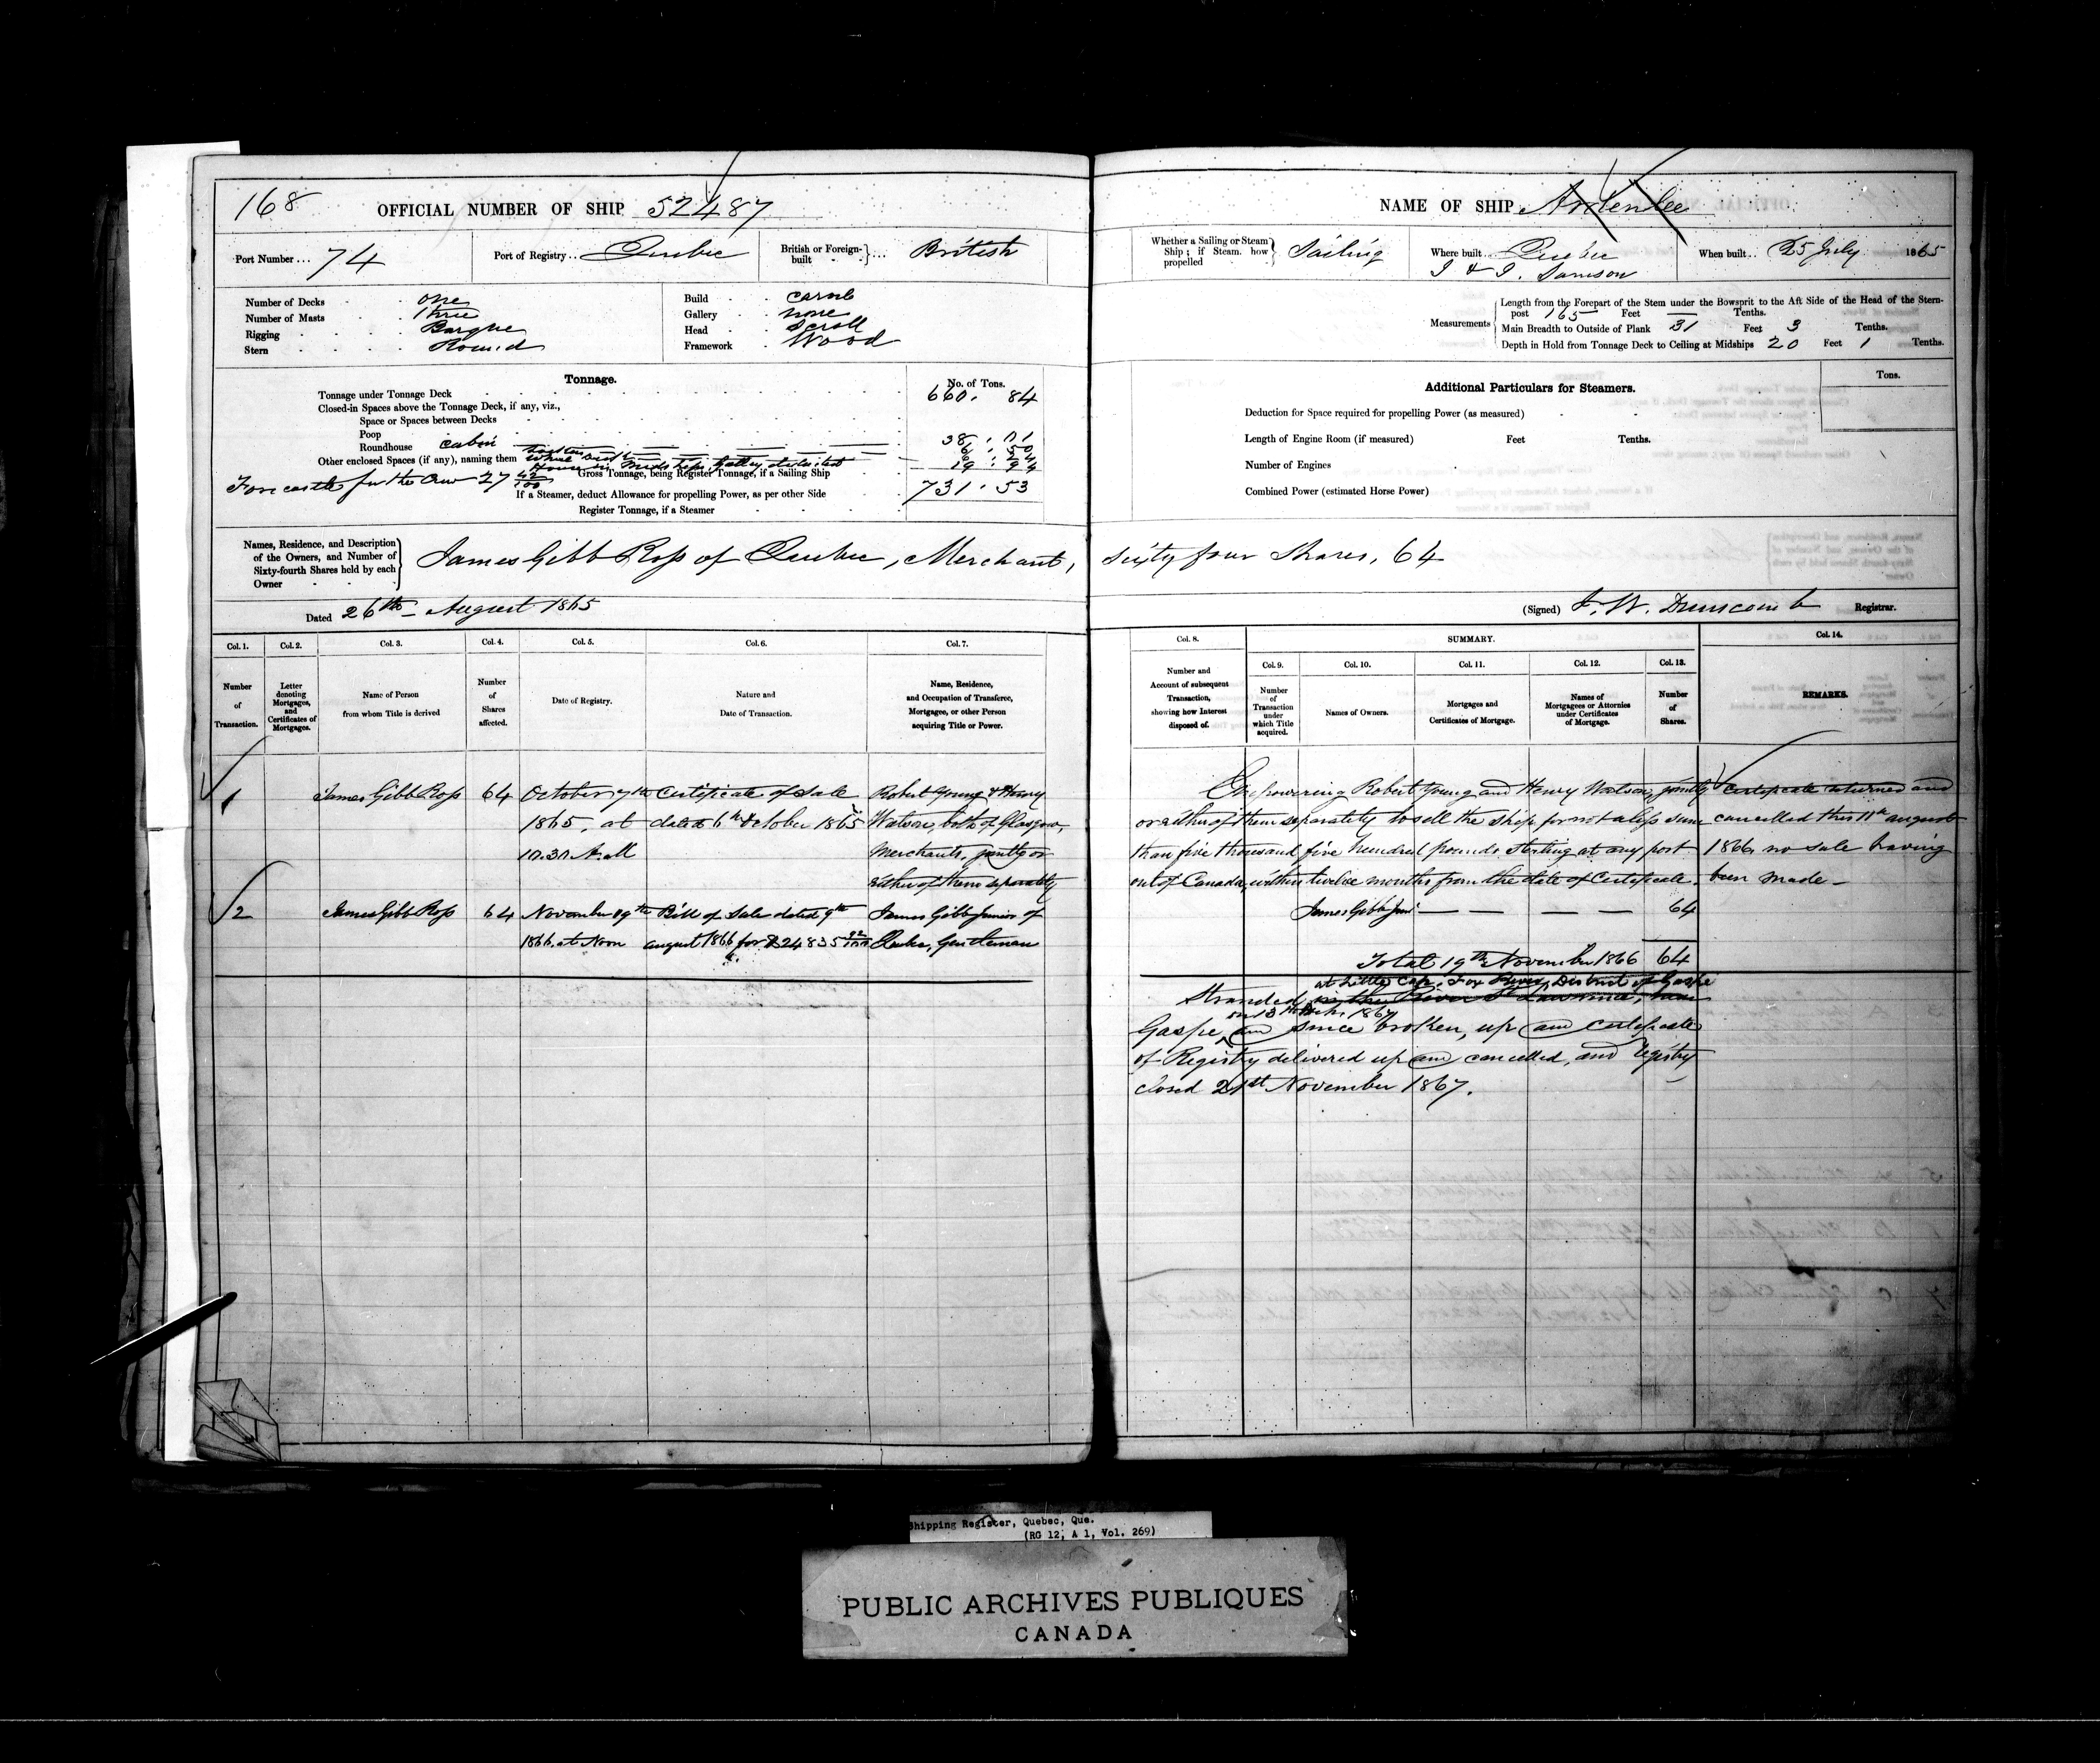 168 OFFICIAL NUMBER OF SHIP 52487
Port Number... 74 Port of Registry... Quebec British or Foreign-built ... British
Number of Decks one
Number of Masts Three
Rigging Barque
Stern Round
Build carvel
Gallery none
Head Scroll
Framework Wood
Tonnage. No. of Tons.
Tonnage under Tonnage Deck 660. 84
Closed-in Spaces above the Tonnage Deck, if any, viz.,
Space or Spaces between Decks
Poop
Roundhouse cabin 38. 01
Other enclosed Spaces (if any), naming them
House in Midships, Galley deducted 19. 94
Forecastle for the Crew 27 42/100 Gross Tonnage, being Register Tonnage, if a Sailing Ship 731. 53
If a Steamer, deduct Allowance for propelling Power, as per other Side
Register Tonnage, if a Steamer
Names, Residence, and Description of the Owners, and Number of Sixty-fourth Shares held by each Owner
James Gibb Ross of Quebec, Merchant,
Dated 26th August 1865
Col. 1. Col. 2. Col. 3. Col. 4. Col. 5. Col. 6. Col. 7.
Number of Transaction.
Letter denoting Mortgages, and Certificates of Mortgages.
Name of Person from whom Title is derived
Number of Shares affected.
Date of Registry.
Nature and Date of Transaction.
Name, Residence, and Occupation of Transferee, Mortgagee, or other Person acquiring Title or Power.
1 James Gibb Ross 64 October 7th Certificate of Sale Robert Young & Henry
1865, at dated 6th October 1865 Watson, both of Glasgow,
10.30 A.M Merchants, jointly or
either of them separately
2 James Gibb Ross 64 November 19th Bill of Sale dated 9th James Gibb Junior of
1866. at Noon august 1866 for $24835 92/100 Quebec, Gentleman
NAME OF SHIP Ardenlee
Whether a Sailing or Steam Ship; if Steam. how propelled Sailing Where built... Quebec When built... 25 July 1865
I & I. Samson
Measurements
Length from the Forepart of the Stem under the Bowsprit to the Aft Side of the Head of the Stern-
post 165 Feet — Tenths.
Main Breadth to Outside of Plank 31 Feet 3 Tenths.
Depth in Hold from Tonnage Deck to Ceiling at Midships 20 Feet 1 Tenths.
Additional Particulars for Steamers. Tons.
Deduction for Space required for propelling Power (as measured)
Length of Engine Room (if measured) Feet Tenths.
Number of Engines
Combined Power (estimated Horse Power)
Sixty four Shares, 64
(Signed) J. W. Dunscomb Registrar.
Col. 8. SUMMARY. Col. 14.
Col. 9. Col. 10. Col. 11. Col. 12. Col. 13.
Number and Account of subsequent Transaction, showing how Interest disposed of.
Number of Transaction under which Title acquired.
Names of Owners.
Mortgages and Certificates of Mortgage.
Names of Mortgagees or Attornies under Certificates of Mortgage.
Number of Shares.
REMARKS.
Empowering Robert Young and Henry Watson, jointly Certificate returned and
or either of them separately to sell the ship for not a less sum cancelled this 11th august
than five thousand five hundred pounds sterling at any port 1866 no sale having
out of Canada, within twelve months from the date of Certificate. been made —
James Gibb Junr — — — — 64
Total 19th November 1866 64
at Little Cape, Fox River, District of Gaspe
Stranded in the River St Lawrence, near
on 13th 1867
Gaspe, and since broken, up and certificate
of Registry delivered up and cancelled, and registry
closed 21st November 1867.
Shipping Register, Quebec, Que.
(RG 12, A 1, Vol. 269)
PUBLIC ARCHIVES PUBLIQUES
CANADA